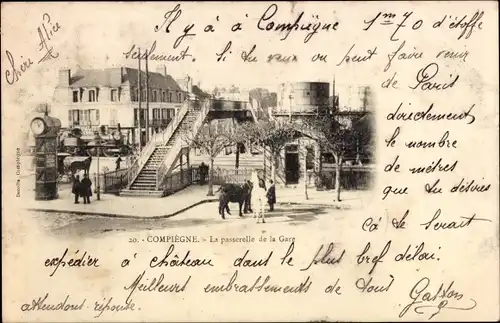 Chère Alice
Il y a à Compiègne 1m70 d'étoffe
seulement. Si tu veux on peut faire venir
de Paris
directement
le nombre
de mètres
que tu désires
Ça te serait
20. - COMPIÈGNE. - La passerelle de la Gare
expédier à château dans le plus bref délai.
Meilleurs embrassements de tous
attendons réponse.
Gaston